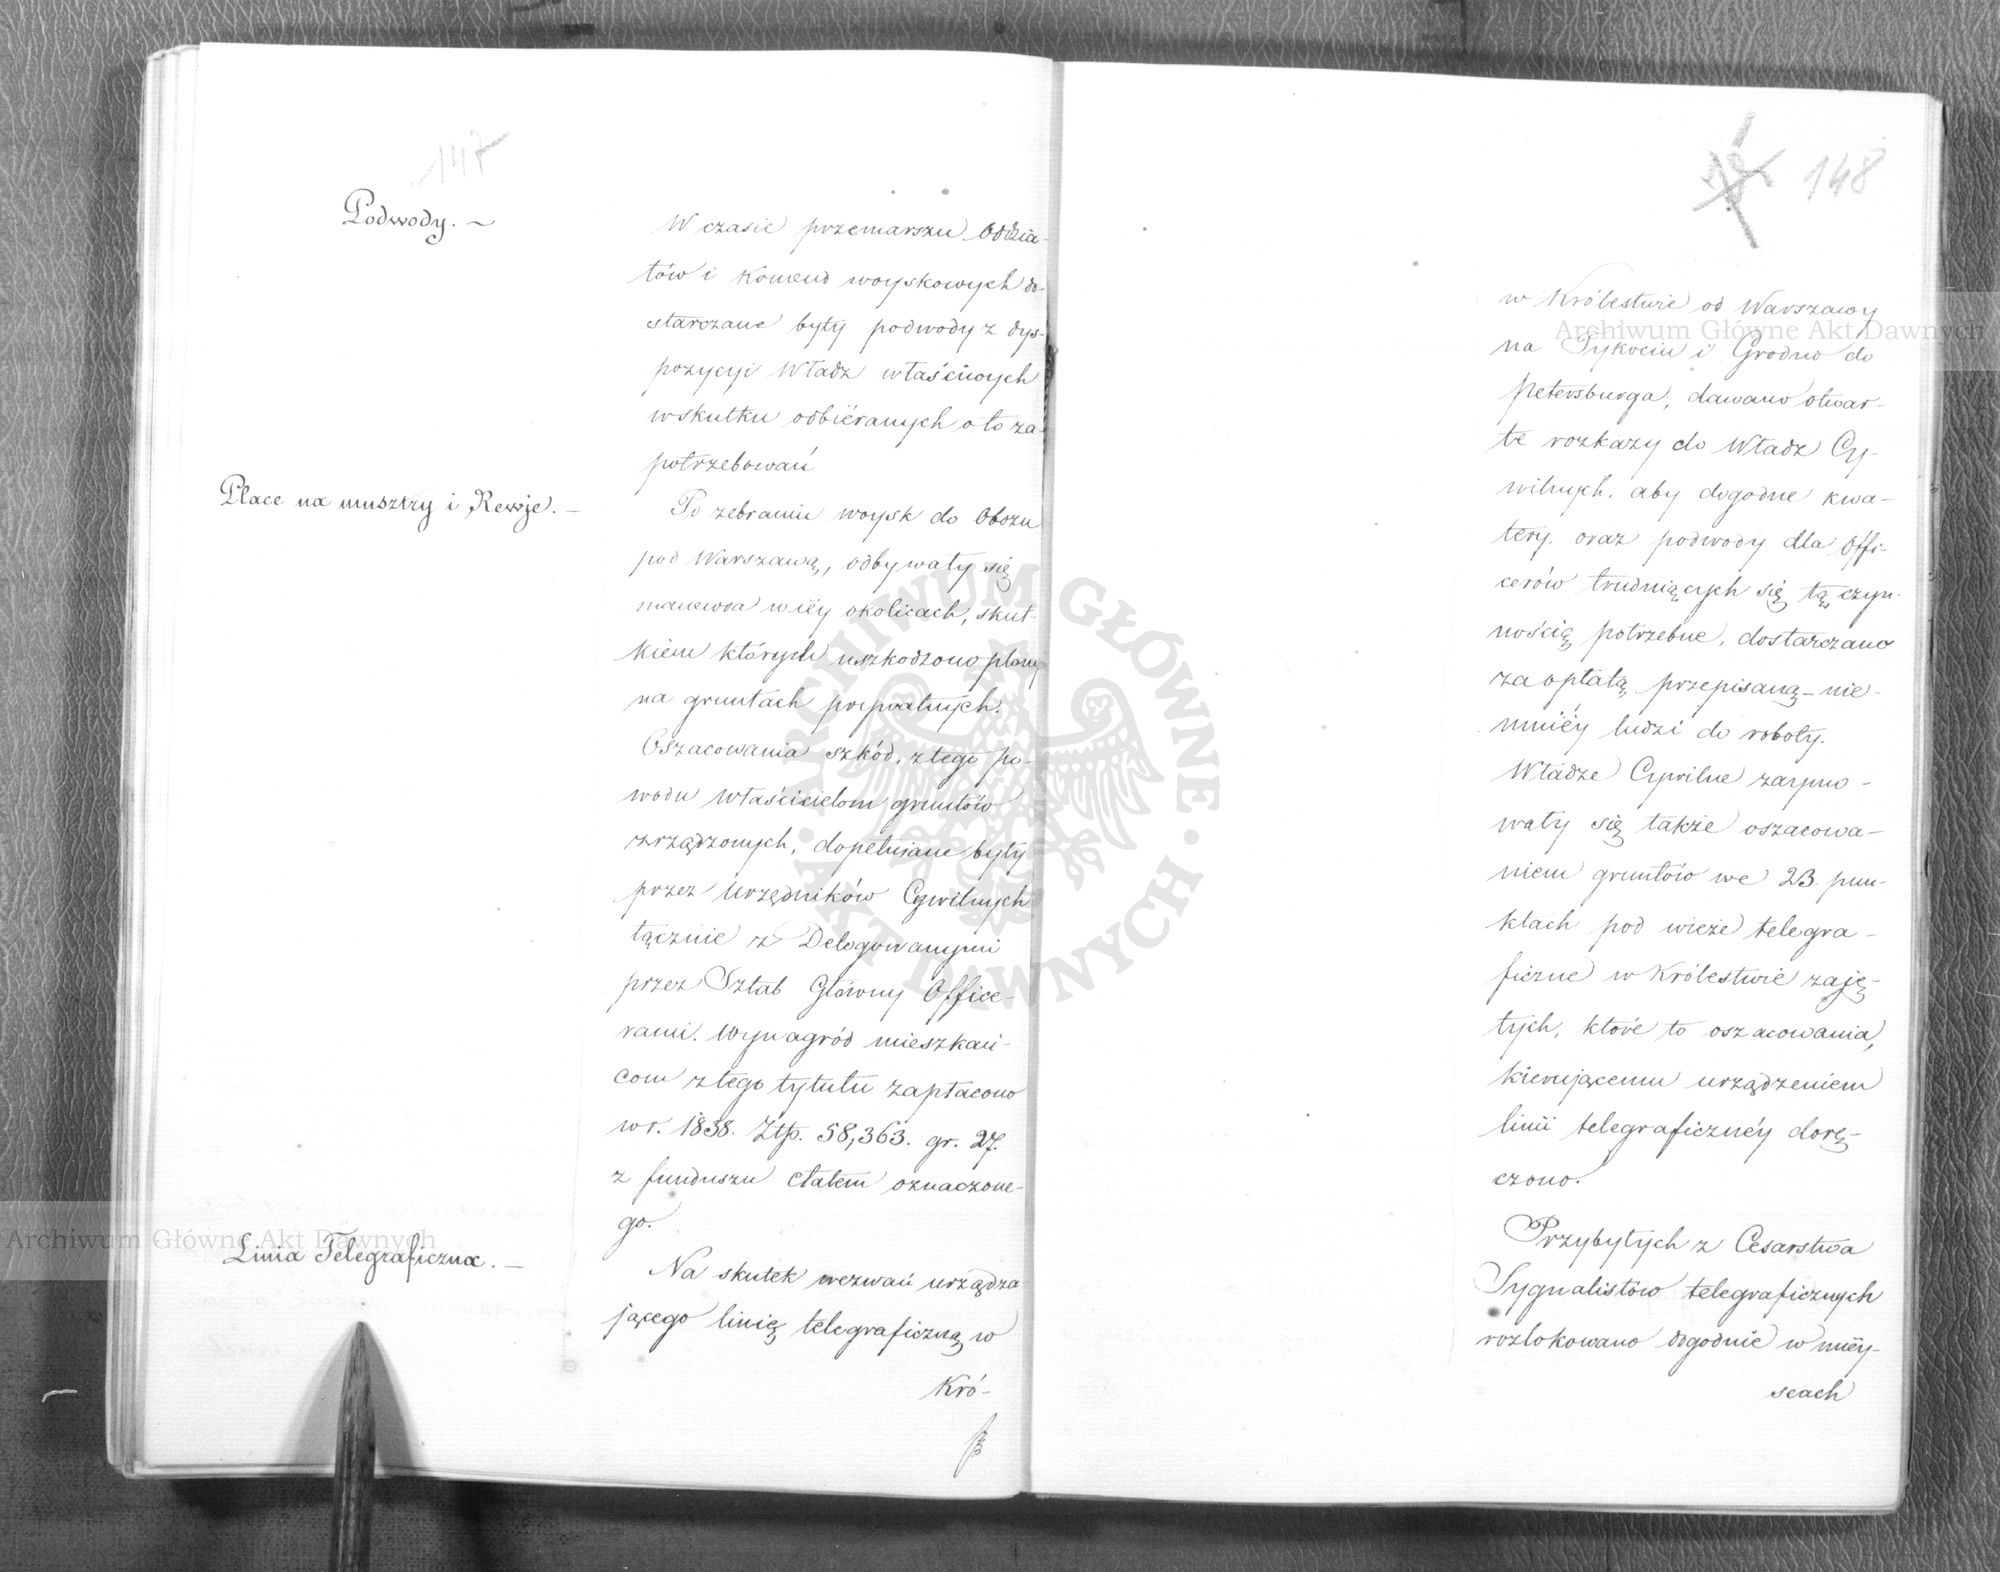 147
Podwody. ~
W czasie przemarszu Oddzia-
łów i Komend woyskowych do-
starczane były podwody z dys-
pozycyi Władz właściwych
wskutku odbiéranych o to za-
potrzebowań
Place na musztry i Rewje. –
Po zebraniu woysk do Obozu
pod Warszawą, odbywały się
manewra w iéy okolicach, skut-
kiem których uszkodzono plony
na gruntach prywatnych.
Oszacowania szkód, z tego po-
wodu właścicielom gruntów
zrządzonych, dopełniane były
przez Urzędników Cywilnych
łącznie z Delegowanymi
przez Sztab Główny Office-
rami. Wynagród mieszkań-
com z tego tytułu zapłacono
w r. 1838. Złp. 58,363. gr. 27.
z funduszu etatem oznaczone-
go.
Linia Telegraficzna. –
Na skutek wezwań urządza
jącego linię telegraficzną w
Kró-
148
w Królestwie od Warszawy
na Tykocin i Grodno do
Petersburga, dawano otwar-
te rozkazy do Władz Cy-
wilnych, aby dogodne kwa-
tery, oraz podwody dla Offi-
cerów trudniących się tą czyn-
nością potrzebne, dostarczano
za opłatą przepisaną – nie-
mniéy ludzi do roboty.
Władze Cywilne zaymo-
wały się także oszacowa-
niem gruntów we 23. pun-
ktach pod wieże telegra-
ficzne w Królestwie zaję-
tych, które to oszacowania,
kierującemu urządzeniem
linii telegraficznéy dorę-
czono.
Przybyłych z Cesarstwa
Sygnalistów telegraficznych
rozlokowano dogodnie w miéy-
scach
Archiwum Główne Akt Dawnych
Archiwum Główne Akt Dawnych
ARCHIWUM GŁÓWNE · AKT DAWNYCH ·